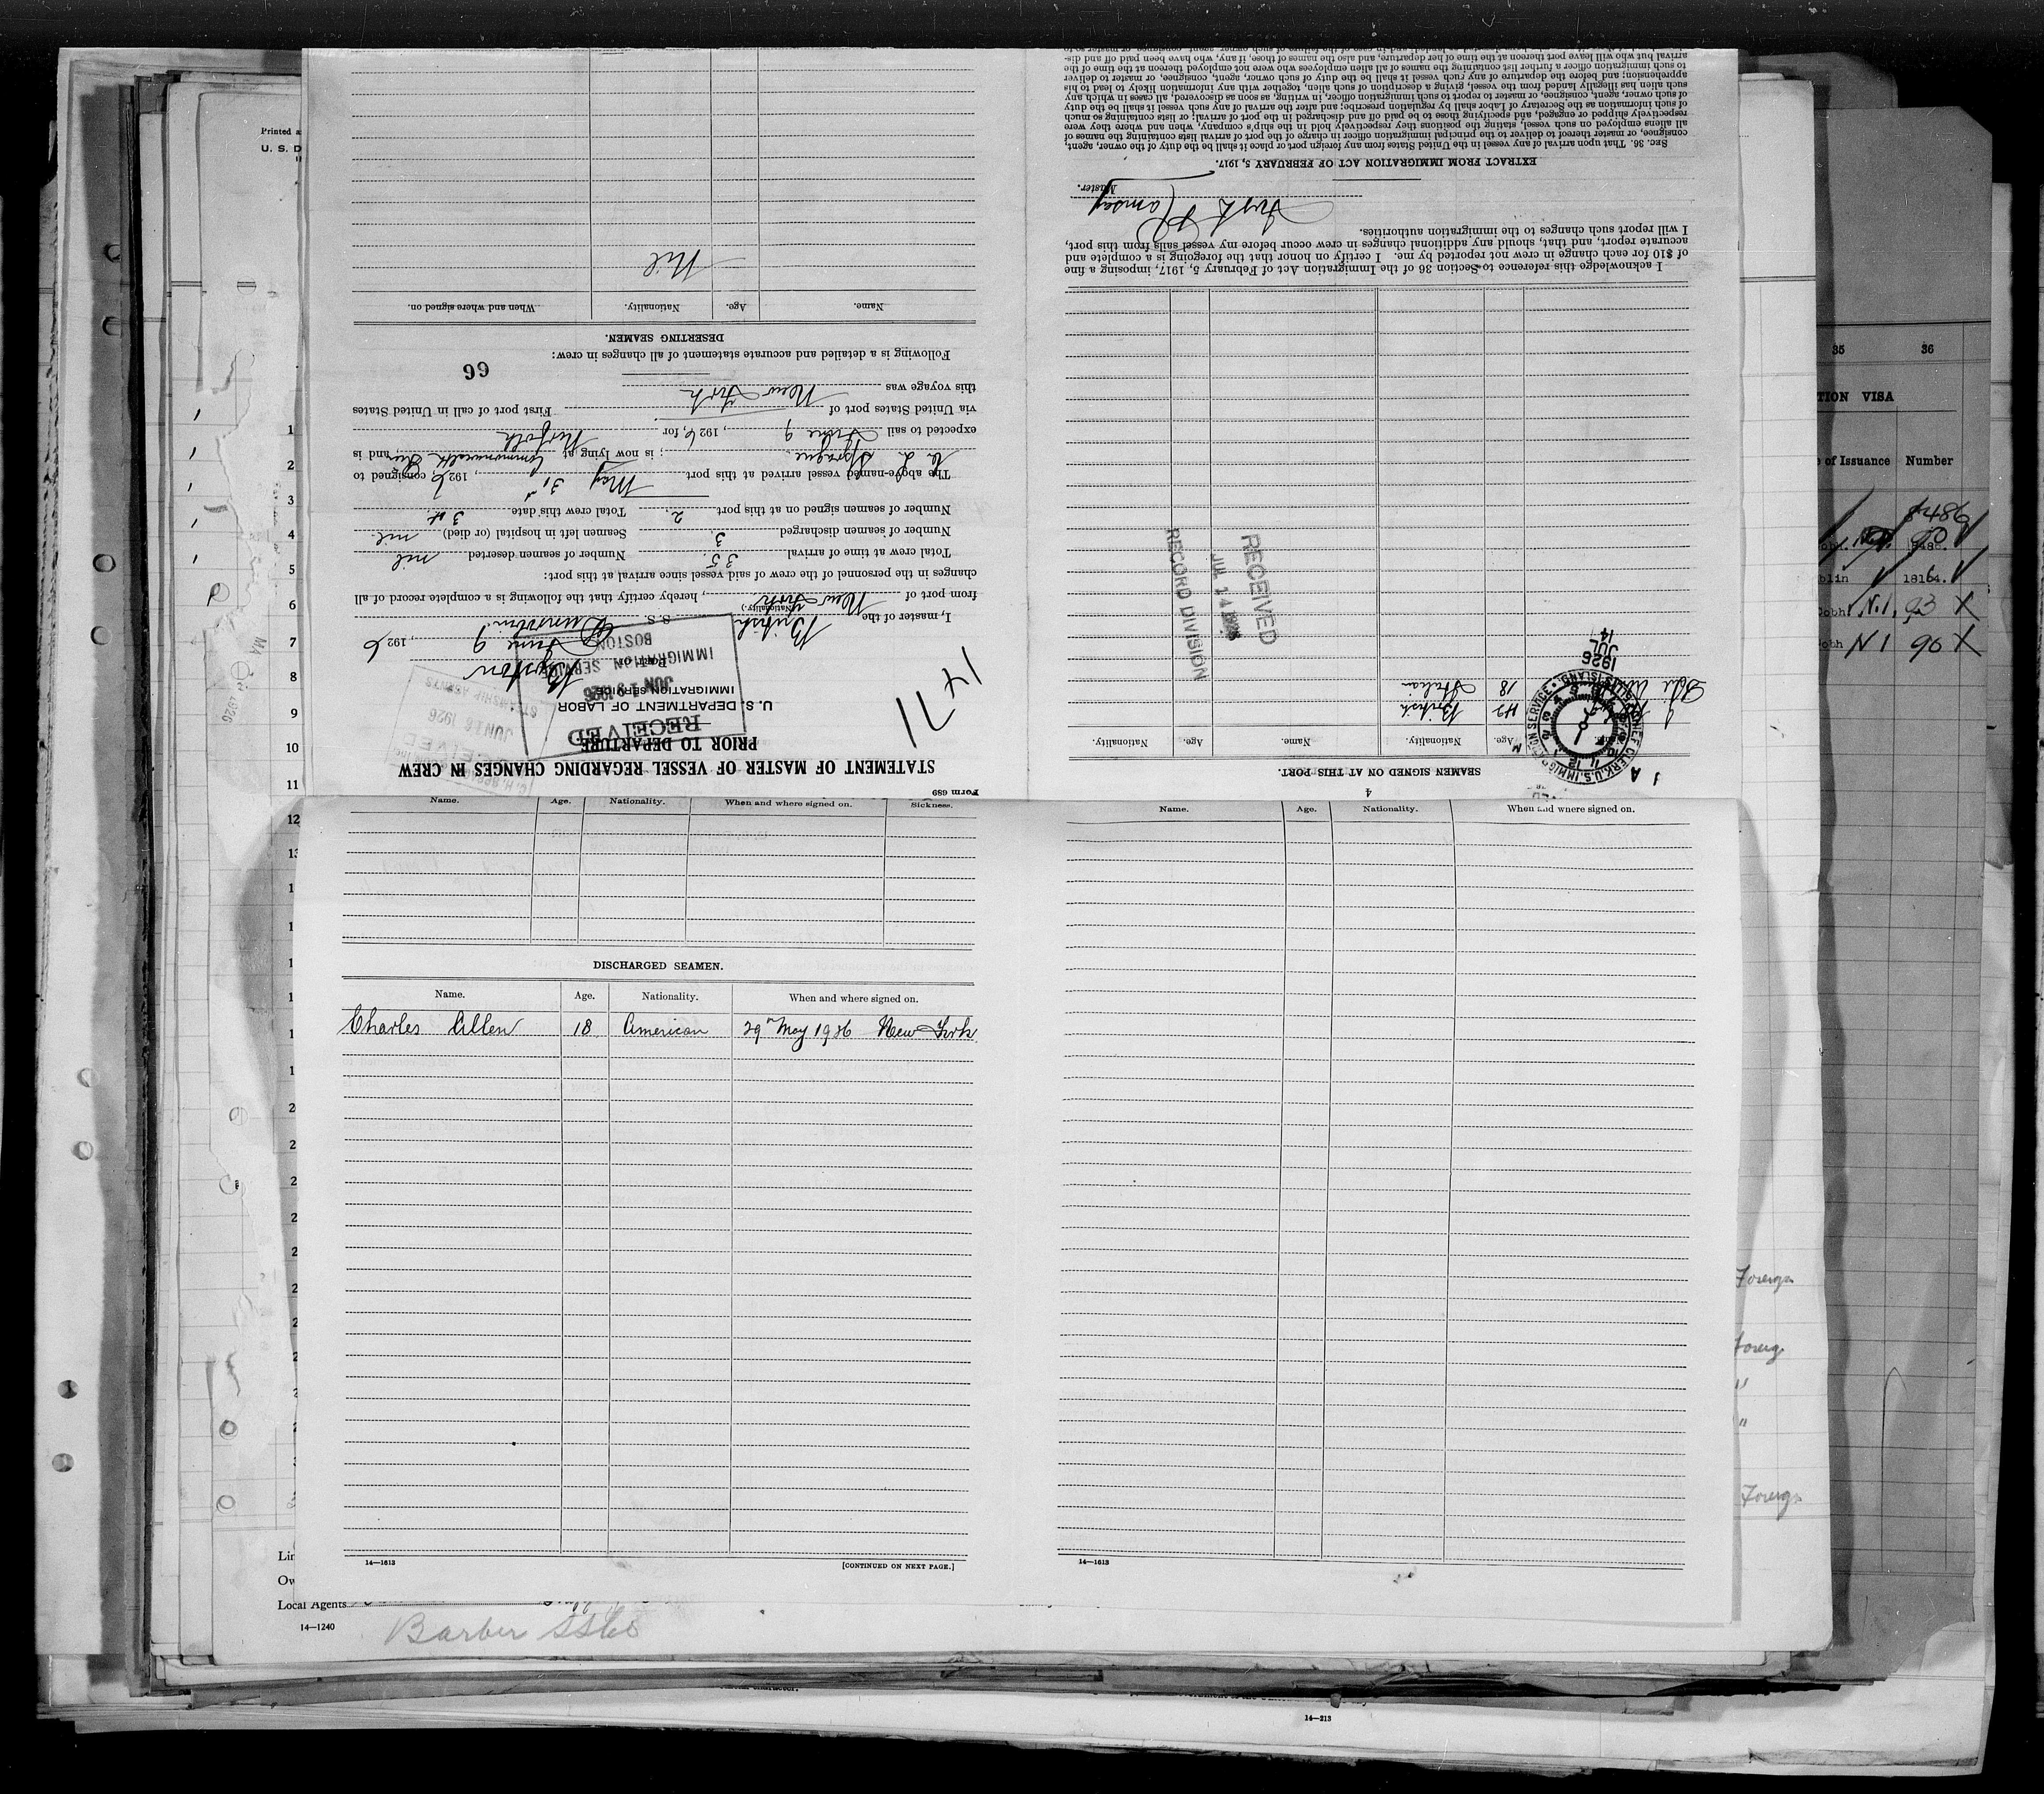 Form 689
STATEMENT OF MASTER OF VESSEL REGARDING CHANGES IN CREW
PRIOR TO DEPARTURE
U. S. DEPARTMENT OF LABOR
IMMIGRATION SERVICE
RECEIVED
JUN 19 1926
IMMIGRATION SERVICE
BOSTON
JUN 16 1926
STEAMSHIP AGENTS
1471
Port of Boston
June 9, 1926
I, master of the British S. S.
(Nationality.)
from port of New York, hereby certify that the following is a complete record of all
changes in the personnel of the crew of said vessel since arrival at this port:
Total crew at time of arrival 35 Number of seamen deserted nil
Number of seamen discharged 3. Seamen left in hospital (or died) nil.
Number of seamen signed on at this port 2. Total crew this date 34.
The above-named vessel arrived at this port May 31st 1926, consigned to
Sprague ; is now lying at Commonwealth Pier, and is
expected to sail June 9, 1926, for Norfolk
via United States port of First port of call in United States
this voyage was New York
66
Following is a detailed and accurate statement of all changes in crew:
DESERTING SEAMEN.
Name. Age. Nationality. When and where signed on.
Nil
4
SEAMEN SIGNED ON AT THIS PORT.
Age. Nationality. Name. Age. Nationality.
42 British
18 Italian
CHIEF CLERK, U.S. IMMIGRATION SERVICE
ELLIS ISLAND
1926
JUL
14
RECEIVED
JUL 14 1926
RECORD DIVISION
I acknowledge this reference to Section 36 of the Immigration Act of February 5, 1917, imposing a fine
of $10 for each change in crew not reported by me. I certify on honor that the foregoing is a complete and
accurate report, and that, should any additional changes in crew occur before my vessel sails from this port,
I will report such changes to the immigration authorities.
Ramsay
Master.
EXTRACT FROM IMMIGRATION ACT OF FEBRUARY 5, 1917.
SEC. 36. That upon arrival of any vessel in the United States from any foreign port or place it shall be the duty of the owner, agent,
consignee, or master thereof to deliver to the principal immigration officer in charge of the port of arrival lists containing the names of
all aliens employed on such vessel, stating the positions they respectively hold in the ship's company, when and where they were
respectively shipped or engaged, and specifying those to be paid off and discharged in the port of arrival; or lists containing so much
of such information as the Secretary of Labor shall by regulation prescribe; and after the arrival of any such vessel it shall be the duty
of such owner, agent, consignee, or master to report to such immigration officer, in writing, as soon as discovered, all cases in which any
such alien has illegally landed from the vessel, giving a description of such alien, together with any information likely to lead to his
apprehension; and before the departure of any such vessel it shall be the duty of such owner, agent, consignee, or master to deliver
to such immigration officer a further list containing the names of all alien employees who were not employed thereon at the time of the
arrival but who will leave port thereon at the time of her departure, and also the names of those, if any, who have been paid off and dis-
Name. Age. Nationality. When and where signed on. Sickness.
DISCHARGED SEAMEN.
Name. Age. Nationality. When and where signed on.
Charles Allen 18 American 29th May 1926 New York
14—1613
[CONTINUED ON NEXT PAGE.]
Name. Age. Nationality. When and where signed on.
14—1613
Printed
U. S. D
1
2
3
4
5
6
7
8
9
10
11
12
Local Agents
14—1240
Barber SS Co
35 36
TION VISA
of Issuance Number
8486
18164.
N.1, 93 X
N 1 90 X
Foreign
Foreign
"
"
Foreign
14—213